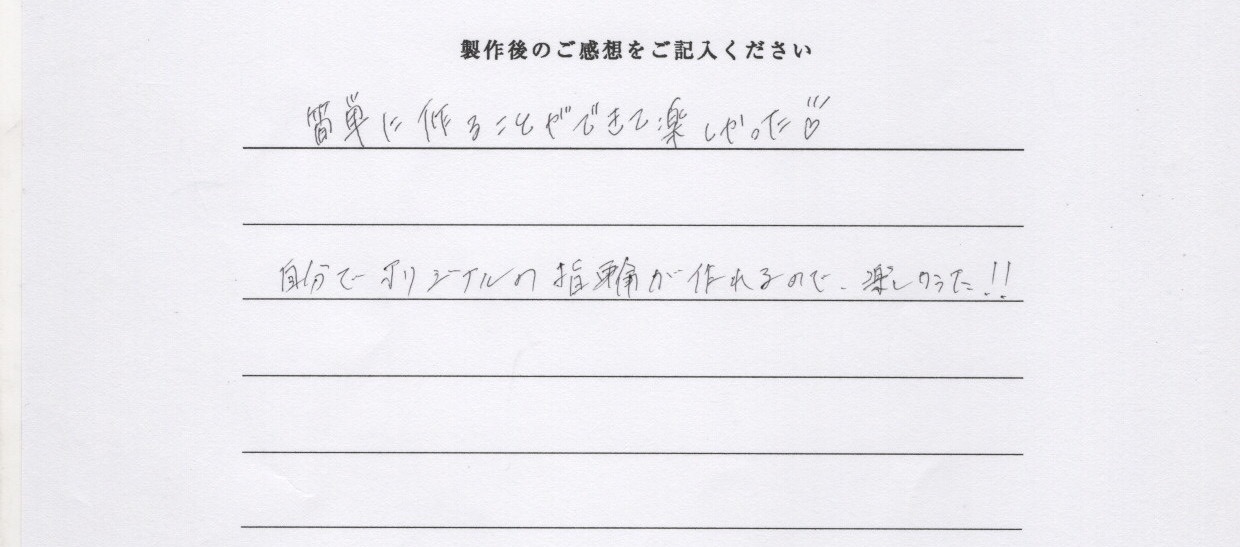 製作後のご感想をご記入ください
簡単に作ることができて楽しかった♡
自分でオリジナルの指輪が作れるので、楽しかった!!